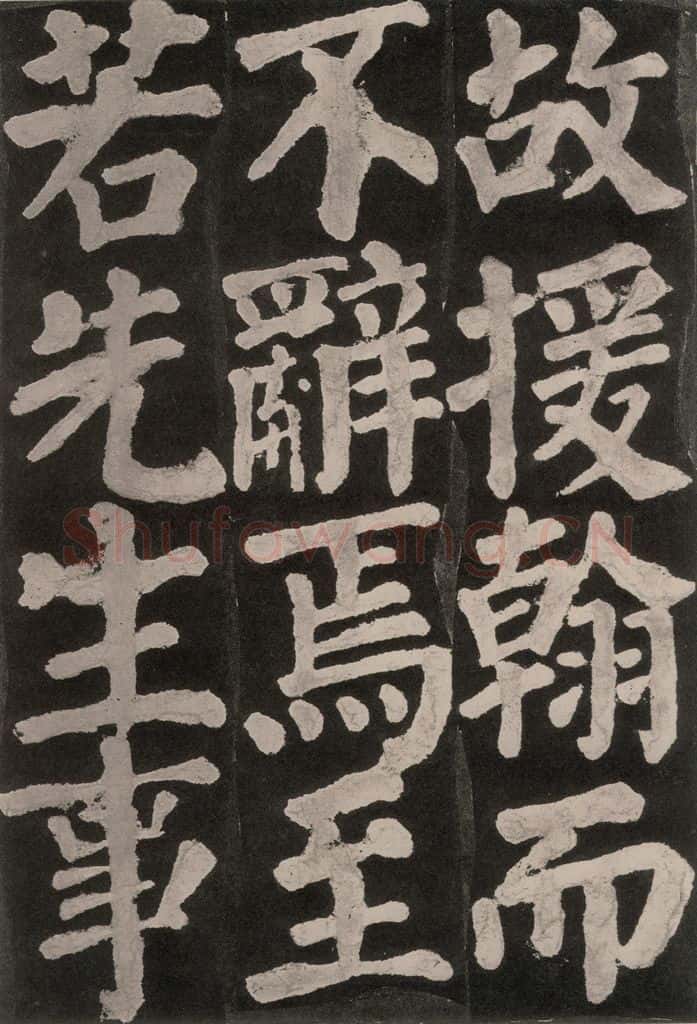 故援翰而
不辭焉至
若先生事
Shufawang.CN